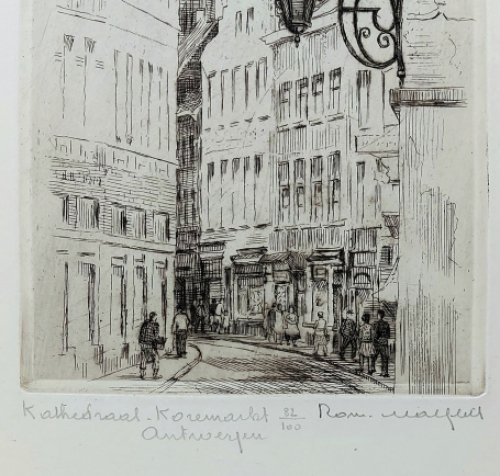 Kathedraal - Koremarkt 32/100 Rom. Malfliet
Antwerpen